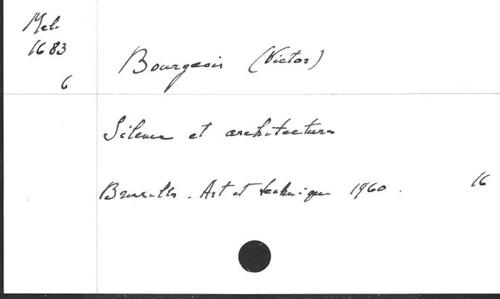 Mel.
1683
6
Bourgeois (Victor)
Silence et architecture
Bruxelles. Art et technique 1960. 16